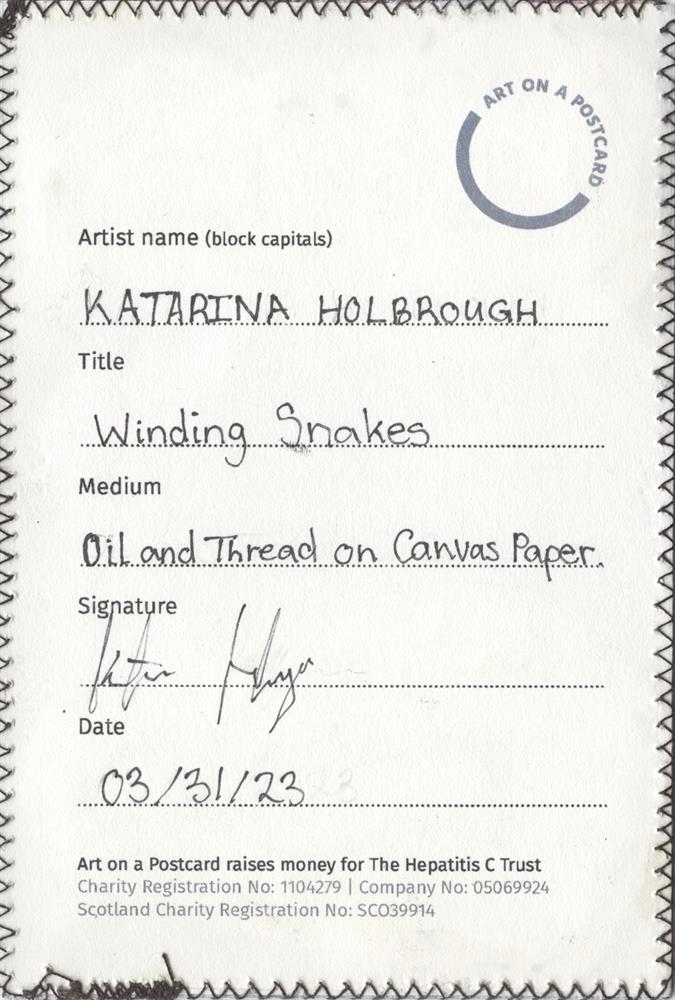 ART ON A POSTCARD
Artist name (block capitals)
KATARINA HOLBROUGH
Title
Winding Snakes
Medium
Oil and Thread on Canvas Paper.
Signature
Date
03/31/23
Art on a Postcard raises money for The Hepatitis C Trust
Charity Registration No: 1104279 | Company No: 05069924
Scotland Charity Registration No: SCO39914